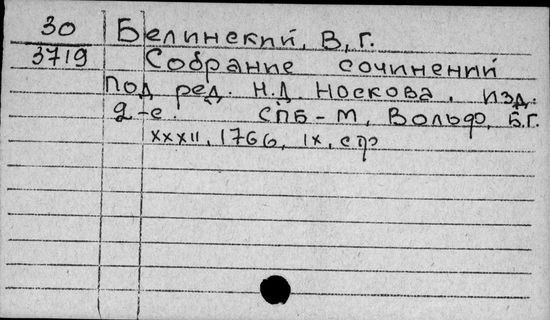 30 Белинский, В, Г.
3719 Собрание сочинений
под ред. Н.Д. Носкова. изд.
2-е. СПБ-М, Вольф, Б.Г.
XXXII, 1766, IX, стр